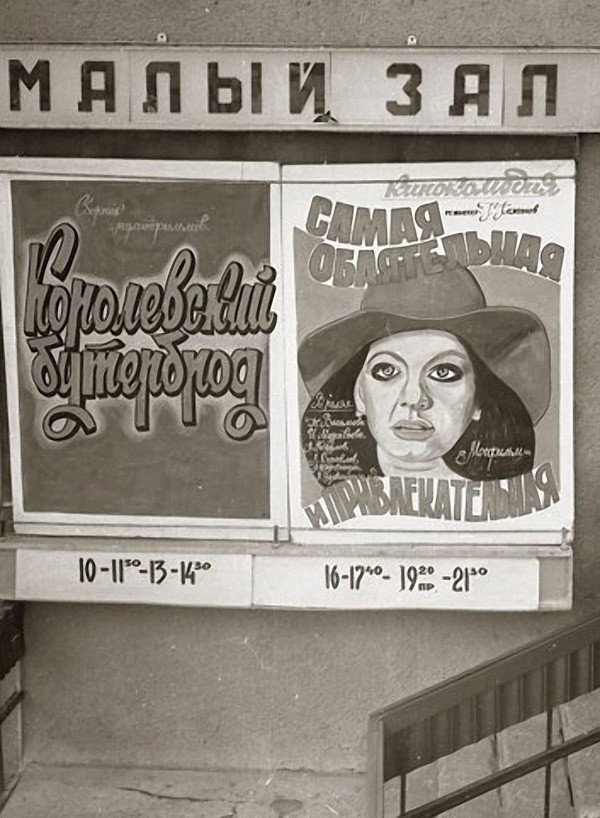 МАЛЫЙ ЗАЛ
Сборник
мультфильмов
Королевский
бутерброд
Кинокомедия
САМАЯ
режиссер
ОБАЯТЕЛЬНАЯ
В ролях
"Мосфильм"
И ПРИВЛЕКАТЕЛЬНАЯ
10-11³⁰-13-14³⁰
16-17⁴⁰-19²⁰ пр.-21³⁰